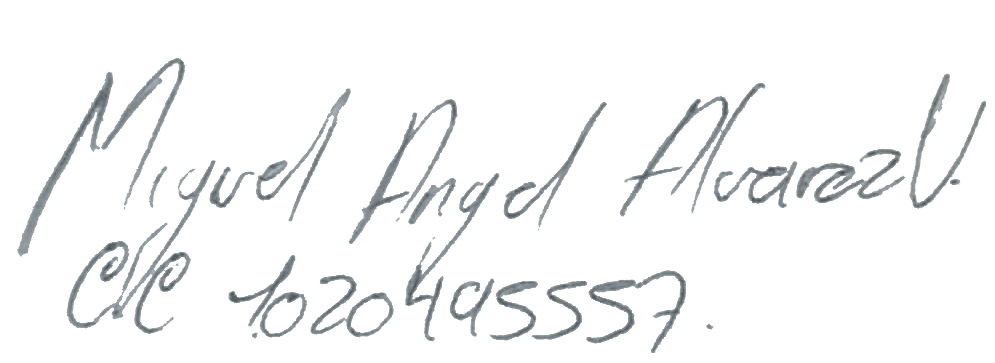 Miguel Angel Alvarez V.
C/C 1020495557.